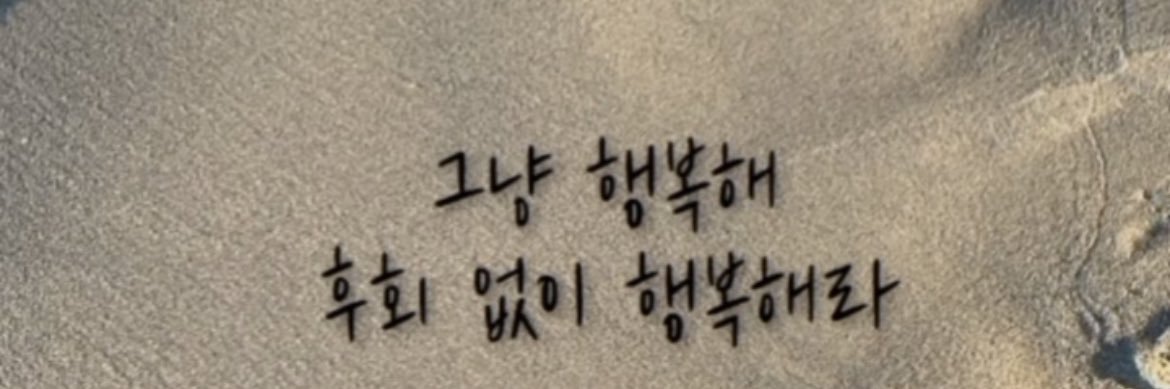 그냥 행복해
후회 없이 행복해라